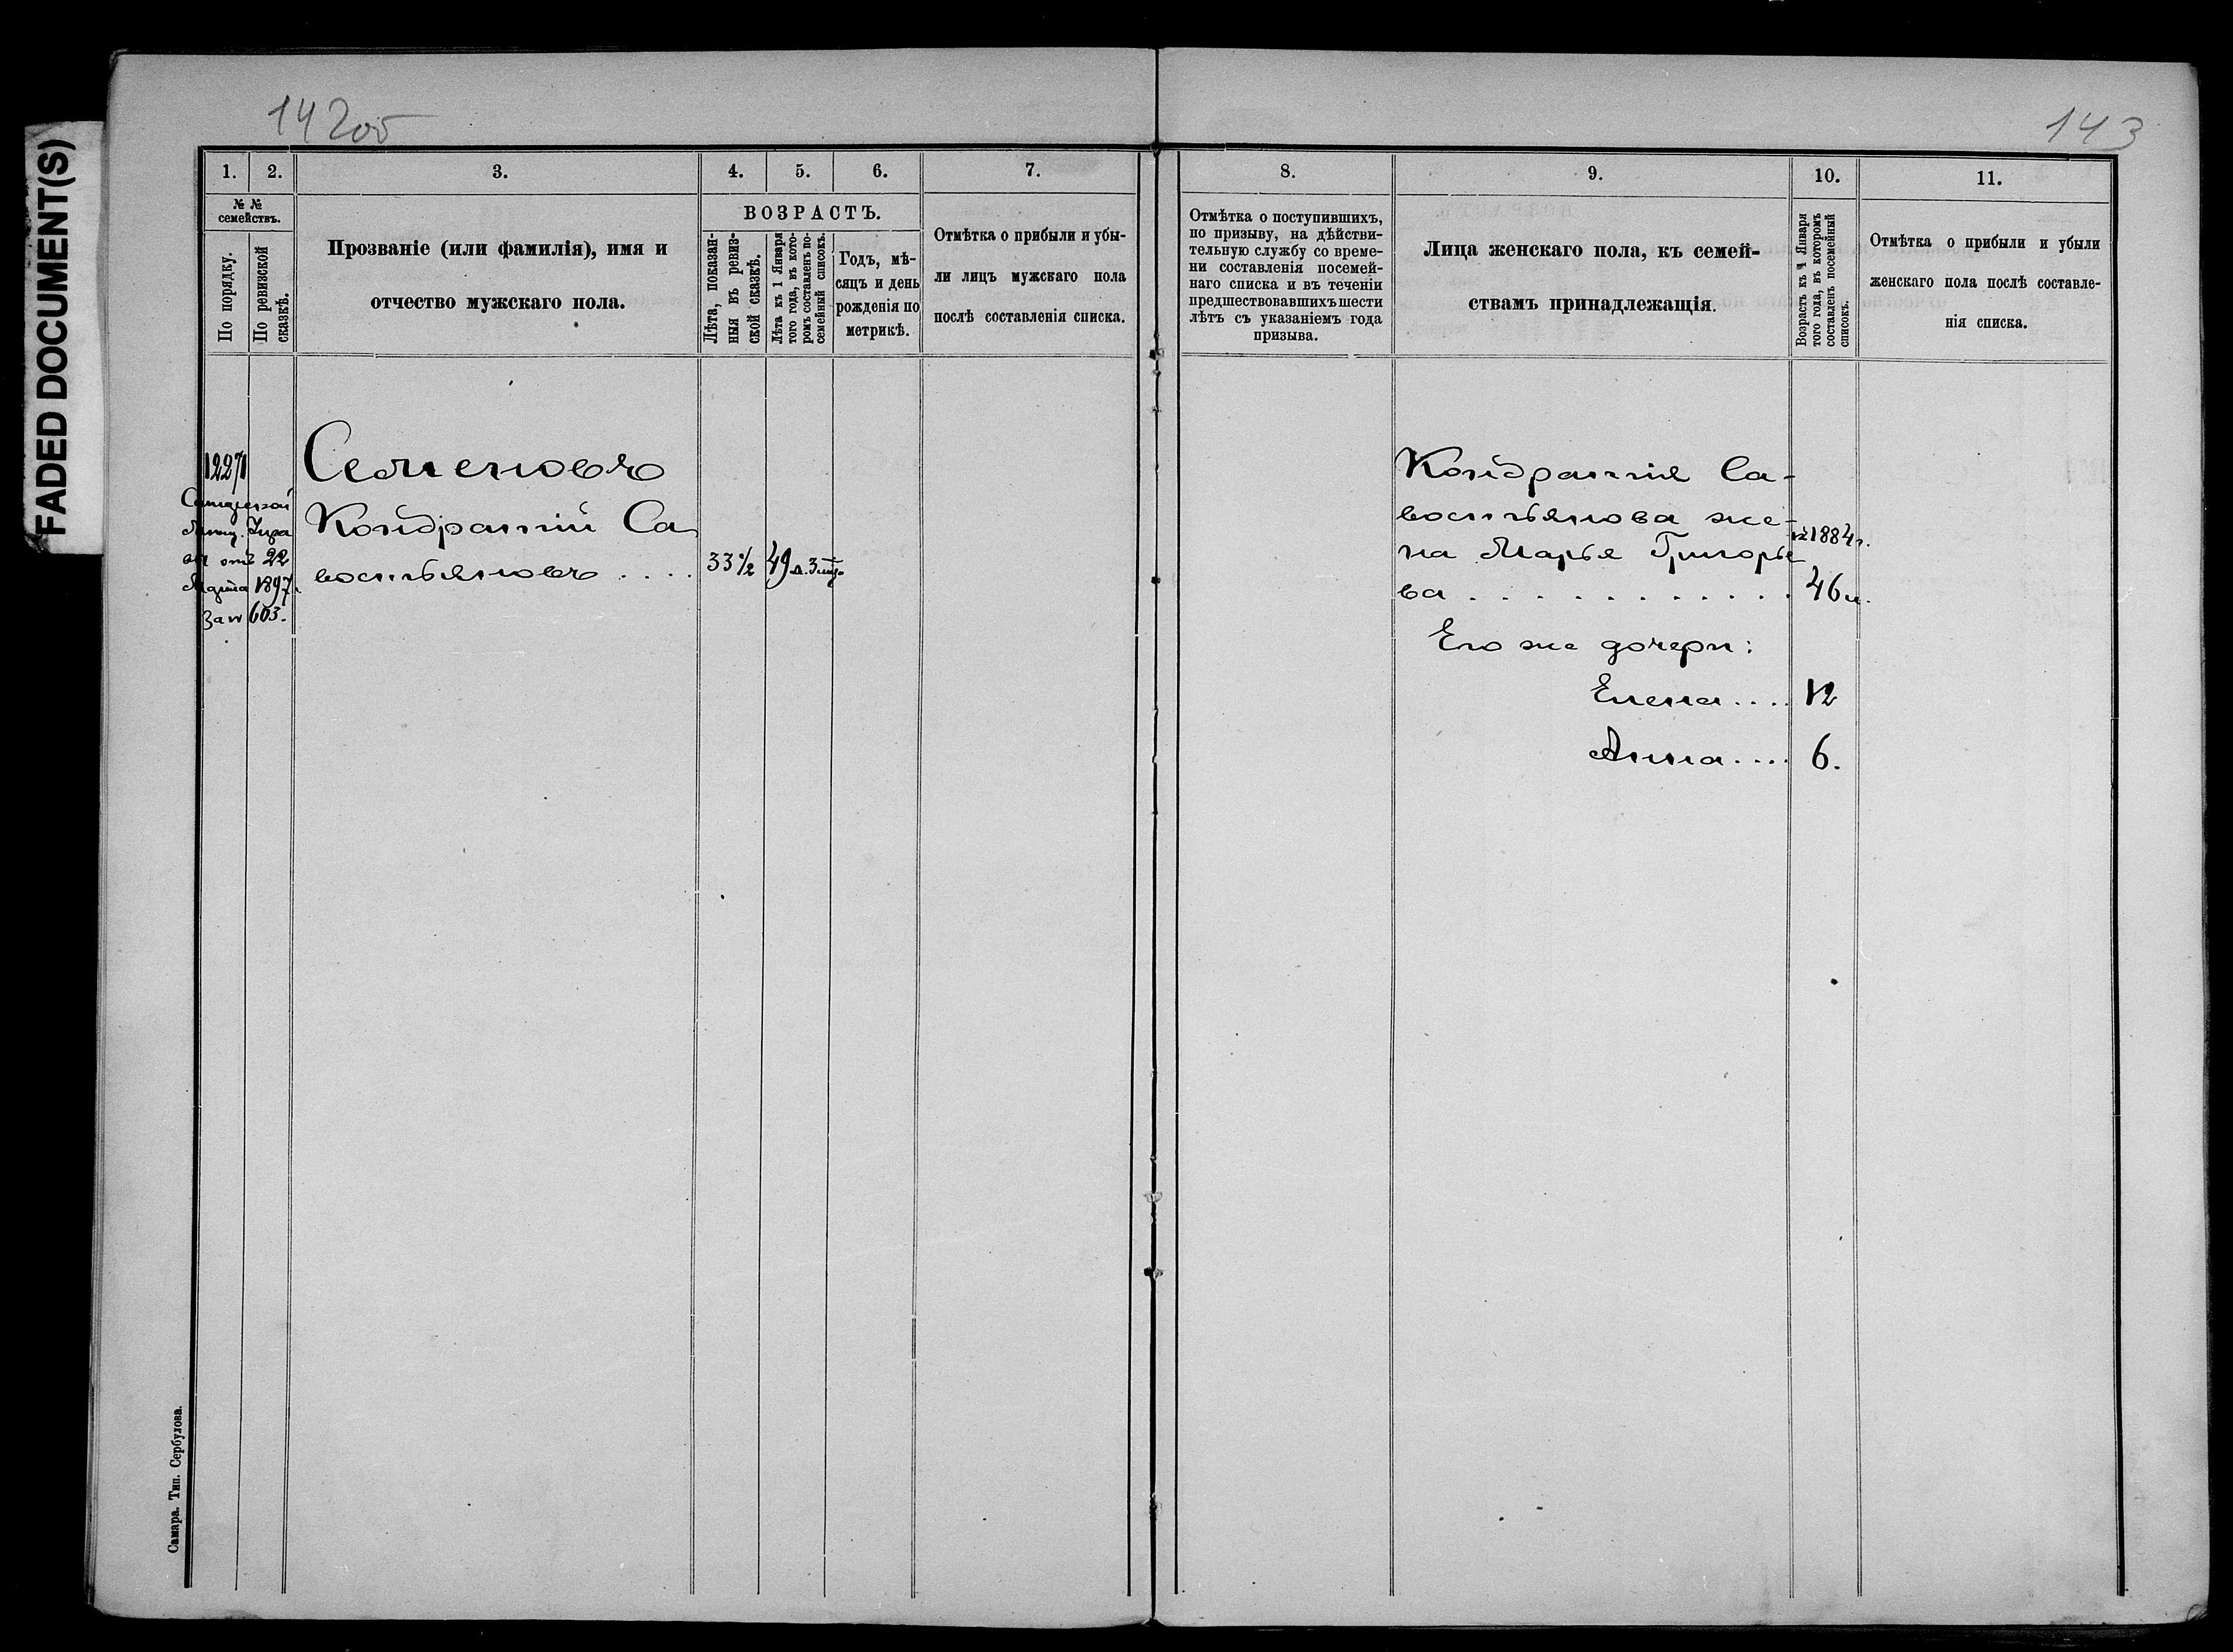 FADED DOCUMENT(S)
14205
143
1.
2.
3.
4.
5.
6.
7.
8.
9.
10.
11.
№ №
семействъ.
По порядку.
По ревизской
сказкѣ.
Прозваніе (или фамилія), имя и
отчество мужскаго пола.
ВОЗРАСТЪ.
Лѣта, показан-
ныя въ ревиз-
ской сказкѣ.
Лѣта къ 1 Января
того года, въ кото-
ромъ составленъ по-
семейный списокъ.
Годъ, мѣ-
сяцъ и день
рожденія по
метрикѣ.
Отмѣтка о прибыли и убы-
ли лицъ мужскаго пола
послѣ составленія списка.
Отмѣтка о поступившихъ,
по призыву, на дѣйстви-
тельную службу со време-
ни составленія посемей-
наго списка и въ теченіи
предшествовавшихъ шести
лѣтъ съ указаніемъ года
призыва.
Лица женскаго пола, къ семей-
ствамъ принадлежащія.
Возрастъ къ 1 Января
того года, въ которомъ
составленъ посемейный
списокъ.
Отмѣтка о прибыли и убыли
женскаго пола послѣ составле-
нія списка.
1227
отъ 22
Марта 1897 г.
за № 603.
Семеновъ
Кондратій Са
востьяновъ . . . .
33½
49 л. 3 мѣс.
Кондратія Са-
востьянова же-
на Марья Григорье
ва . . . . . . . . . . . .
1884 г.
46 л.
Его же дочери:
Елена . . . .
12
Анна . . . .
6.
Самара. Тип. Сербулова.